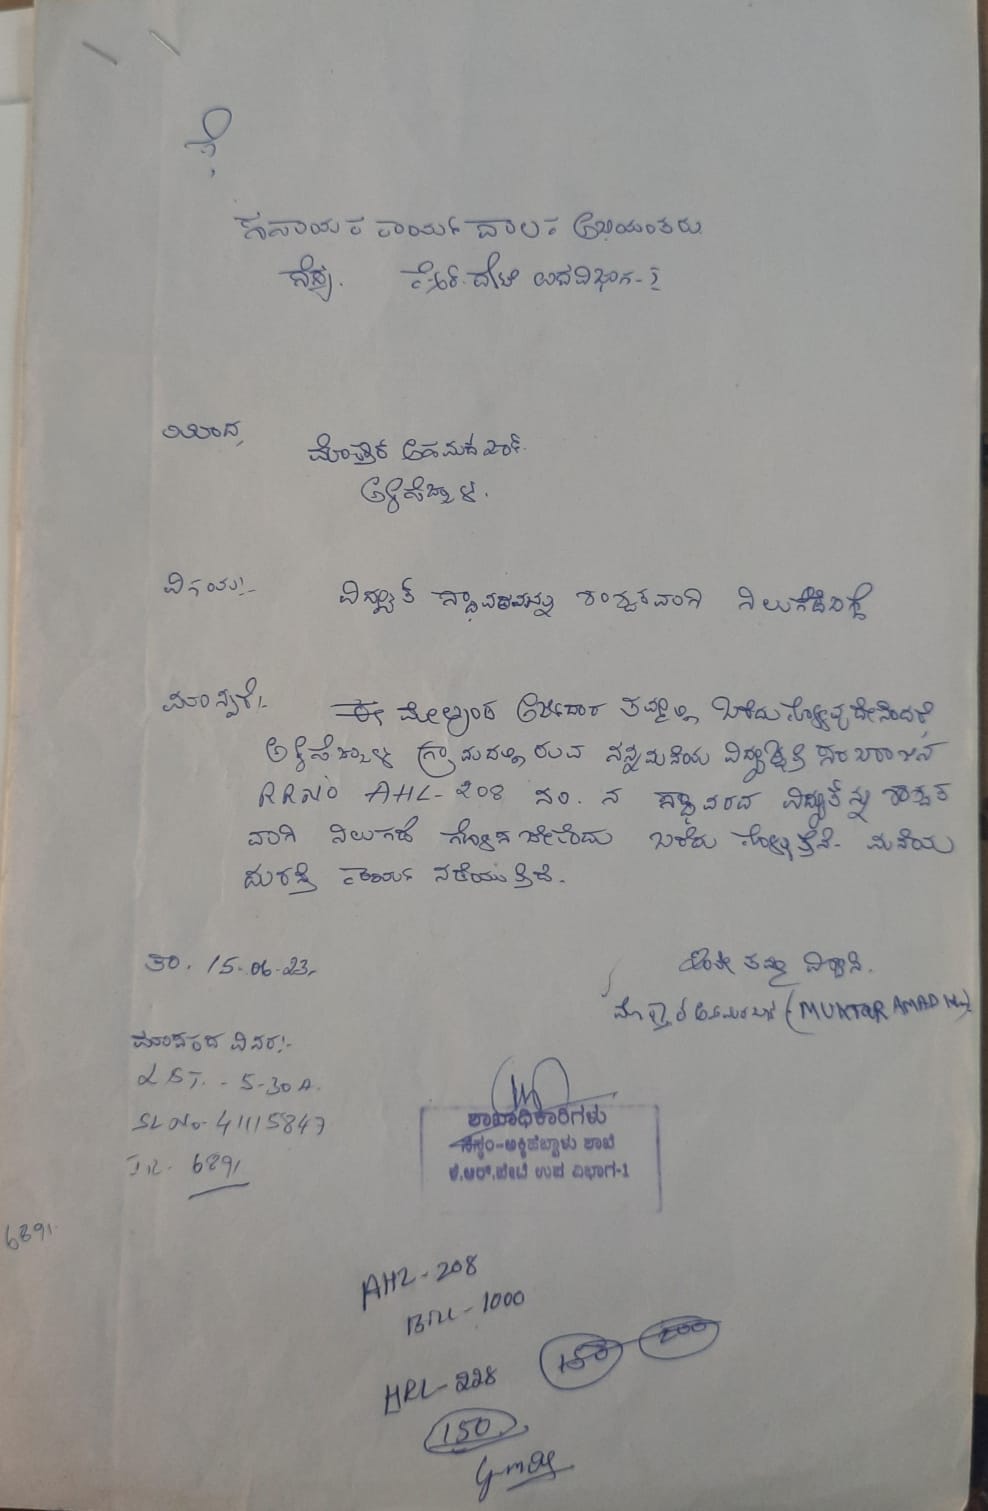 ಗೆ,
ಸಹಾಯಕ ಕಾರ್ಯಪಾಲಕ ಅಭಿಯಂತರರು
ಕೆ.ಆರ್.ಪೇಟೆ ಉಪವಿಭಾಗ-1
ಯಿಂದ,
ಮೊಕ್ತಾರ ಅಹಮದ ಖಾನ್
ಅಕ್ಕಿಹೆಬ್ಬಾಳ.
ವಿಷಯ:-
ವಿದ್ಯುತ್ ಸ್ಥಾವರವನ್ನು ಶಾಶ್ವತವಾಗಿ ನಿಲುಗಡೆ ಬಗ್ಗೆ
ಮಾನ್ಯರೆ:-
ಈ ಮೇಲ್ಕಂಡ ಅರ್ಜಿದಾರ ತಮ್ಮಲ್ಲಿ ಬರೆದುಕೊಳ್ಳುವುದೇನೆಂದರೆ,
ಅಕ್ಕಿಹೆಬ್ಬಾಳ ಗ್ರಾಮದಲ್ಲಿರುವ ನನ್ನ ಮನೆಯ ವಿದ್ಯುಚ್ಛಕ್ತಿ ಸರಬರಾಜಿನ
RRNO AHL-208 ನಂ. ನ ಸ್ಥಾವರದ ವಿದ್ಯುತ್‌ನ್ನು ಶಾಶ್ವತ
ವಾಗಿ ನಿಲುಗಡೆ ಗೊಳಿಸಬೇಕೆಂದು ಬರೆದು ಕೊಳ್ಳುತ್ತೇನೆ. ಮನೆಯ
ದುರಸ್ತಿ ಕಾರ್ಯ ನಡೆಯುತ್ತಿದೆ.
ತಾ. 15-06-23
ಇಂತೀ ತಮ್ಮ ವಿಶ್ವಾಸಿ.
(MUKTAR AMAD
ಮಾಪಕದ ವಿವರ:-
L&T. - 5-30A.
SL No- 41115847
I.R- 6891
ಶಾಖಾಧಿಕಾರಿಗಳು
ಸೆಸ್ಕಾಂ-ಅಕ್ಕಿಹೆಬ್ಬಾಳು ಶಾಖೆ
ಕೆ.ಆರ್.ಪೇಟೆ ಉಪ ವಿಭಾಗ-1
6891
AHL-208
Bill-1000
150 200
HRL-228
150